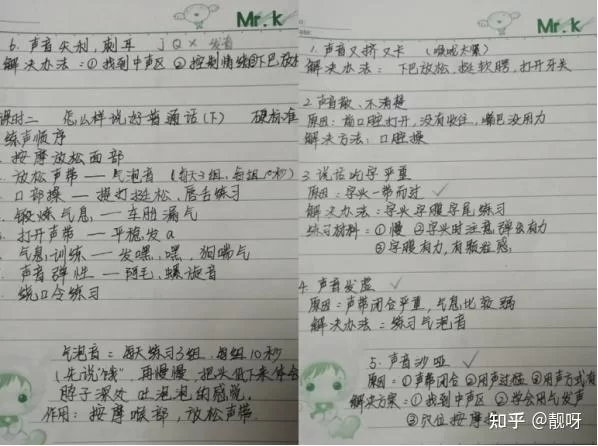 Mr. k
6. 声音尖利,刺耳 j Q X 发音
解决办法:①找到中声区 ②控制情绪③下巴放松
课时二 怎么样说好普通话(下) 硬标准
练声顺序
按摩放松面部
放松声带—气泡音(每天3组,每组10秒)
口部操—提打挺松,唇舌练习
锻炼气息—车胎漏气
打开声带—平稳发a
气息训练—发嘿,嘿,狗喘气
声音弹性—阿毛、螺旋音
绕口令练习
气泡音:每天练习3组,每组10秒
(先说“饿”,再慢慢,把头低下来体会
脖子深处吐泡泡的感觉.
作用:按摩喉部,放松声带.
Mr. k
1. 声音又挤又卡 (喉咙太紧)
解决办法:下巴放松,挺软腭,打开牙关
2 声音散、不清楚
原因:前口腔打开,没有收住,嘴巴没用力
解决方法:口腔操
3. 说话吃字严重
原因:字头一带而过 ✓
解决办法:字头字腹字尾练习
练习材料:①慢 ②字头时注意弹出有力
③字腹有力,有颗粒感
4. 声音发虚 ✓
原因:声带闭合不严重,气息比较弱
解决办法:练习气泡音
5. 声音沙哑 ✓
原因:①声带闭合 ②用声过猛 ③用声方式有
解决方案:①找到中声区 ②学会用气发声
③穴位按摩
知乎 @靓呀